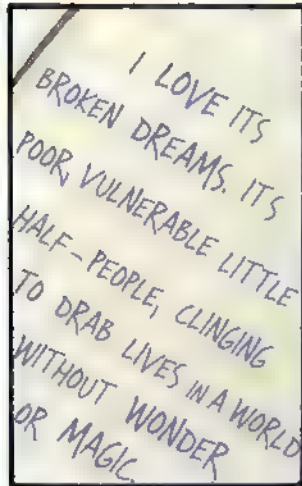 I LOVE ITS
BROKEN DREAMS. ITS
POOR, VULNERABLE LITTLE
HALF-PEOPLE, CLINGING
TO DRAB LIVES IN A WORLD
WITHOUT WONDER
OR MAGIC.